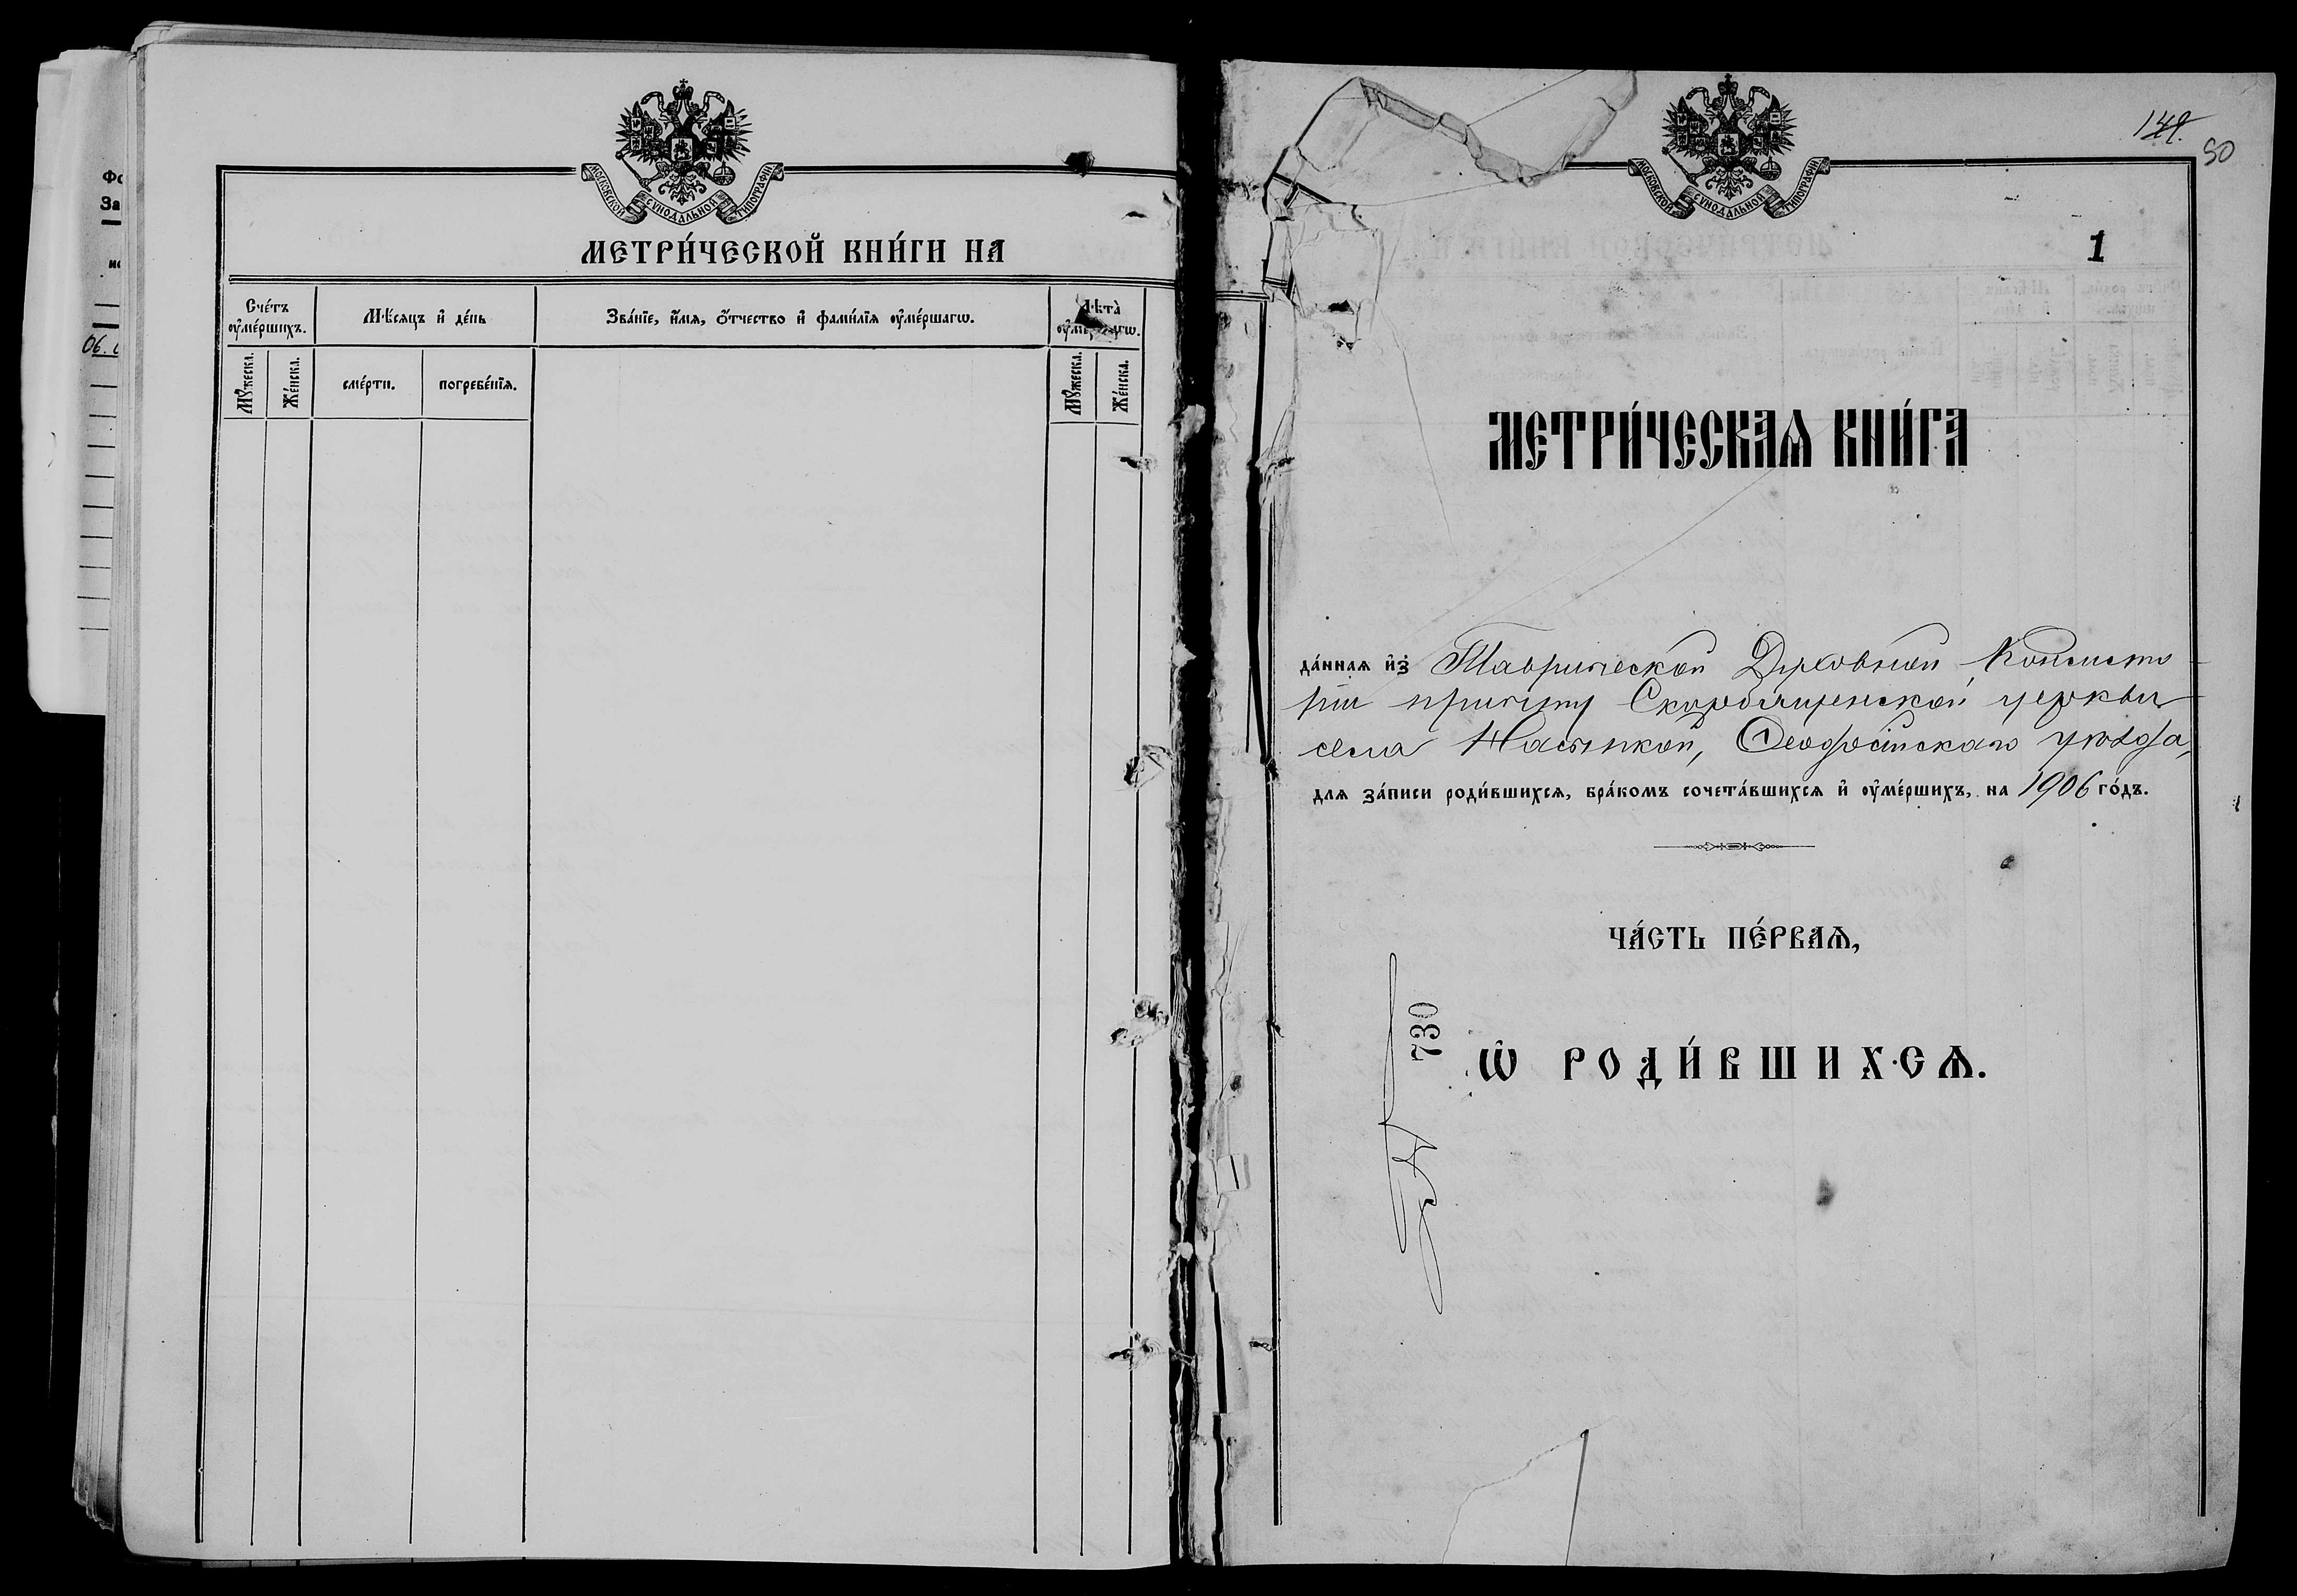 Фо
За
ис
06.
МОСКОВСКОЙ СѴНОДАЛЬНОЙ ТИПОГРАФІИ
МЕТРИ́ЧЕСКОЙ КНИ́ГИ НА
Сче́тъ ᲂу҆ме́ршихъ.
Мѣ́сяцъ и҆ де́нь
Зва́нїе, и҆́мя, ѻ҆́тчество и҆ фамѝлїя ᲂу҆ме́ршагѡ.
Лѣ́та ᲂу҆ме́ршагѡ.
Мꙋ́жеска.
Же́нска.
сме́рти.
погребе́нїя.
Мꙋ́жеска.
Же́нска.
МОСКОВСКОЙ СѴНОДАЛЬНОЙ ТИПОГРАФІИ
149.
50
1
МЕТРИ́ЧЕСКАѦ КНИ́ГА
да́нная и҆з̾ Таврической Духовной Консисто
ріи причту Скорбященской церкви
села Насыпкой, Ѳеодосійскаго уѣзда,
для за́писи роди́вшихся, бра́комъ сочета́вшихся и҆ ᲂу҆ме́ршихъ, на 1906 го́дъ.
ЧА́СТЬ ПЕ́РВАѦ,
730
Ѡ҆ РОДИ́ВШИХСѦ.